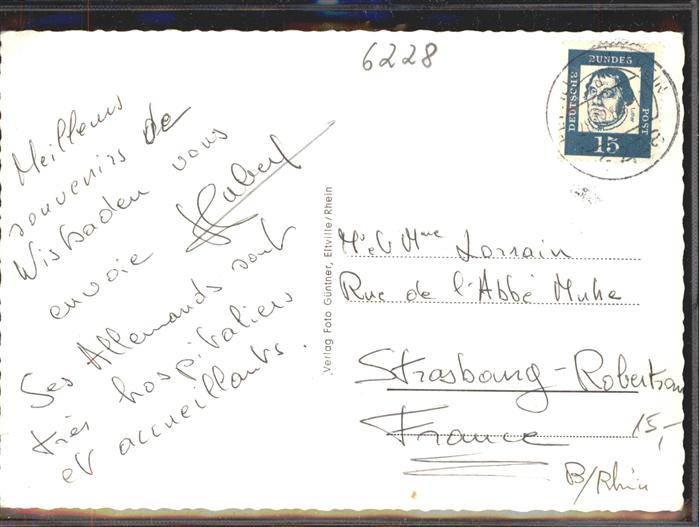 6228
Meilleurs
souvenirs de
Wisbaden vous
envoie Hubert
Ses Allemands sont
très hospitaliers
et accueillants.
Verlag Foto Güntner, Eltville/Rhein
DEUTSCHE BUNDES POST
Luther
15
Mr et Mme Lorrain
Rue de l'Abbé Muhe
Strasbourg-Robertsau
France
15,-
B/Rhin